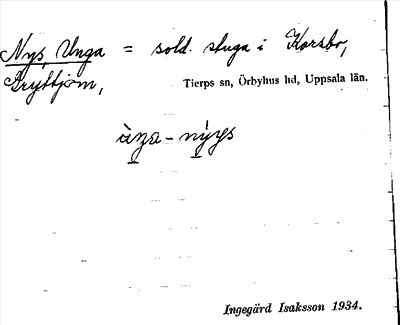 Nys, Unga = sold. stuga i Korsbo,
Gryttjom, Tierps sn, Örbyhus hd, Uppsala län.
àŋa - nýys
Ingegärd Isaksson 1934.